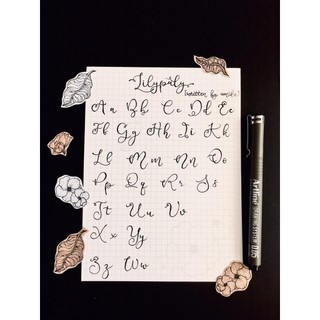 Lilypily
(written by
Aa Bb Cc Dd Ee
Ff Gg Hh Ii Kk
Ll Mm Nn Oo
Pp Qq Rr Ss
Tt Uu Vv
Xx Yy
Zz Ww
Artline